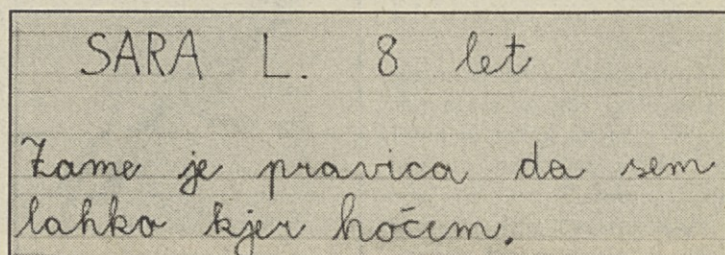 SARA L. 8 let
Zame je pravica da sem
lahko kjer hočem.